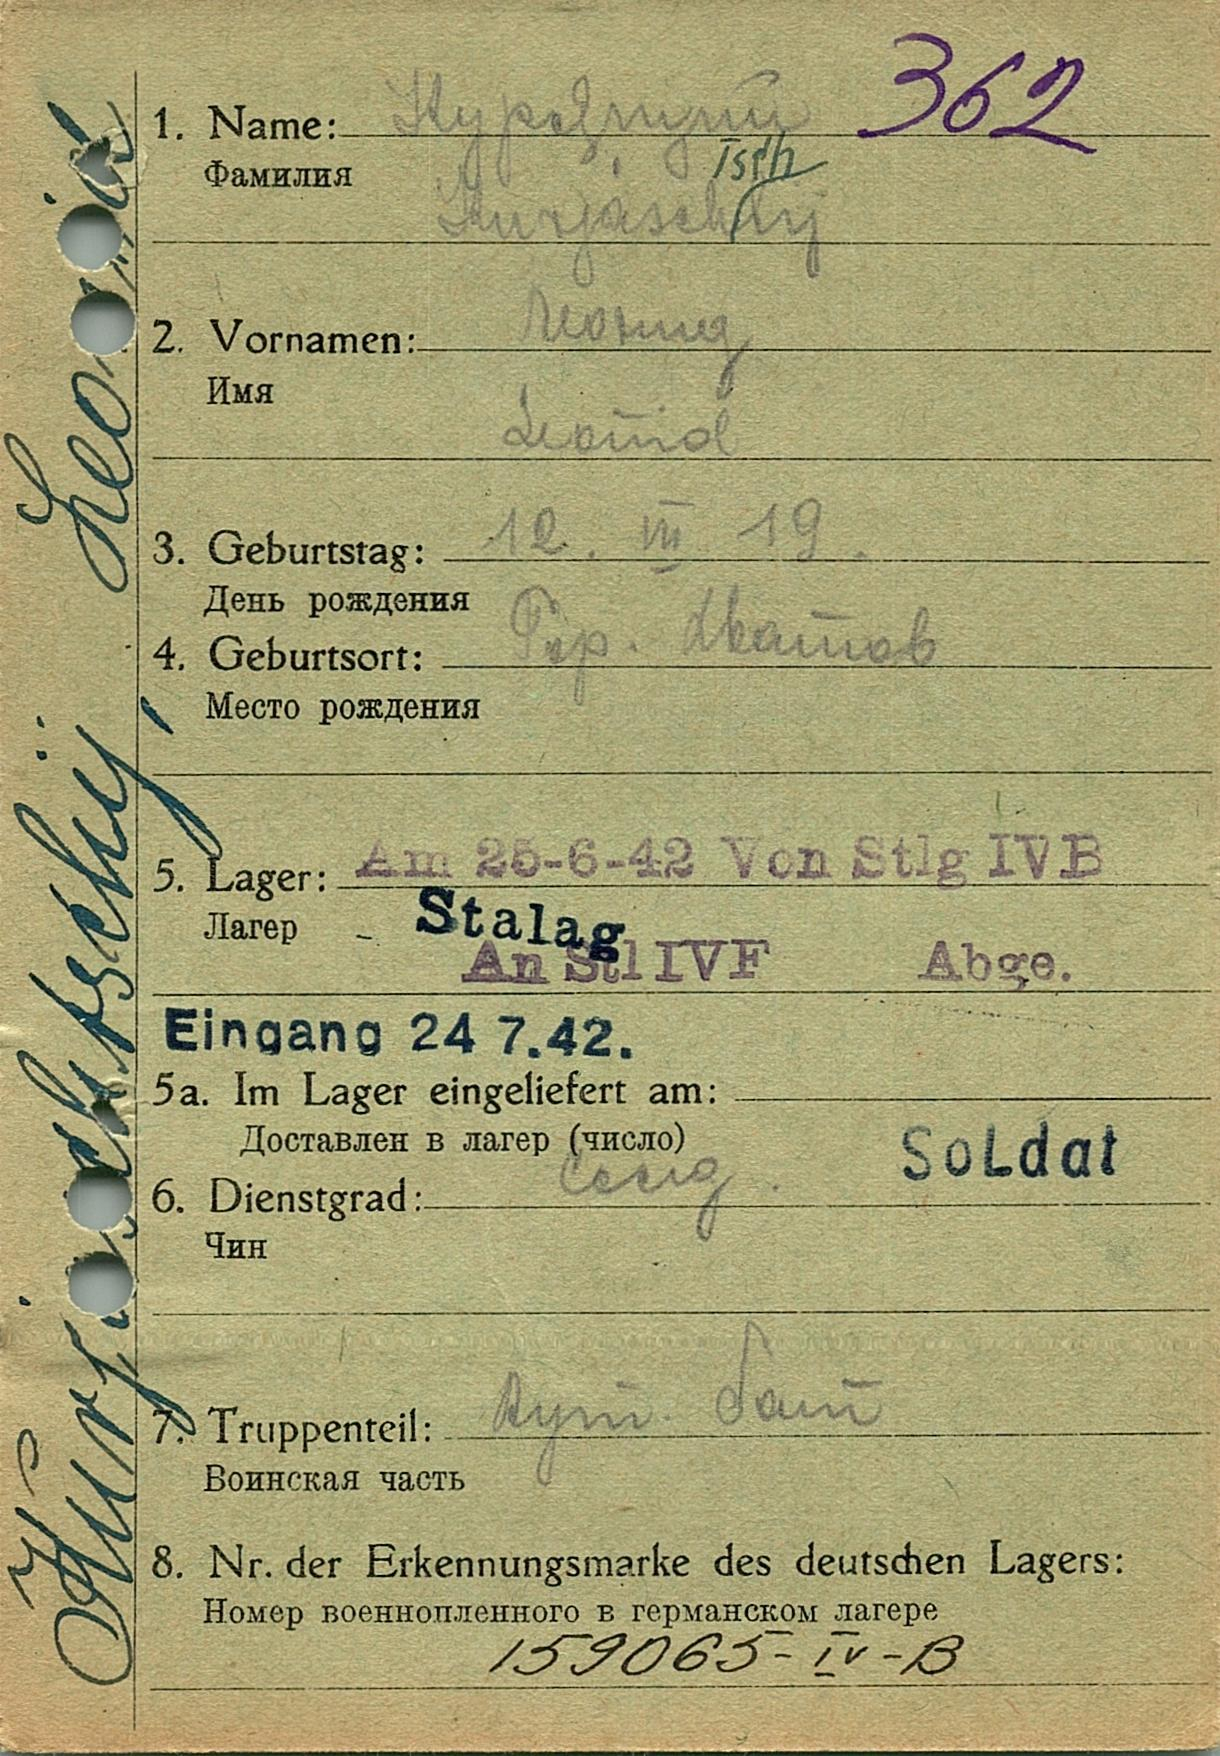 362
1. Name:
Фамилия
Kurjaschij
tsch
2. Vornamen: Леонид
Имя
Leonid
3. Geburtstag: 12. III 19.
День рождения
4. Geburtsort: Гор.
Место рождения
5. Lager: Am 25-6-42 Von Stlg IVB
Лагер - Stalag
An Stl IVF Abge.
Eingang 24 7.42.
5a. Im Lager eingeliefert am:
Доставлен в лагер (число)
Soldat
6. Dienstgrad:
Чин
7. Truppenteil:
Воинская часть
8. Nr. der Erkennungsmarke des deutschen Lagers:
Номер военнопленного в германском лагере
159065-IV-B
Kurjaschtschij, Leonid